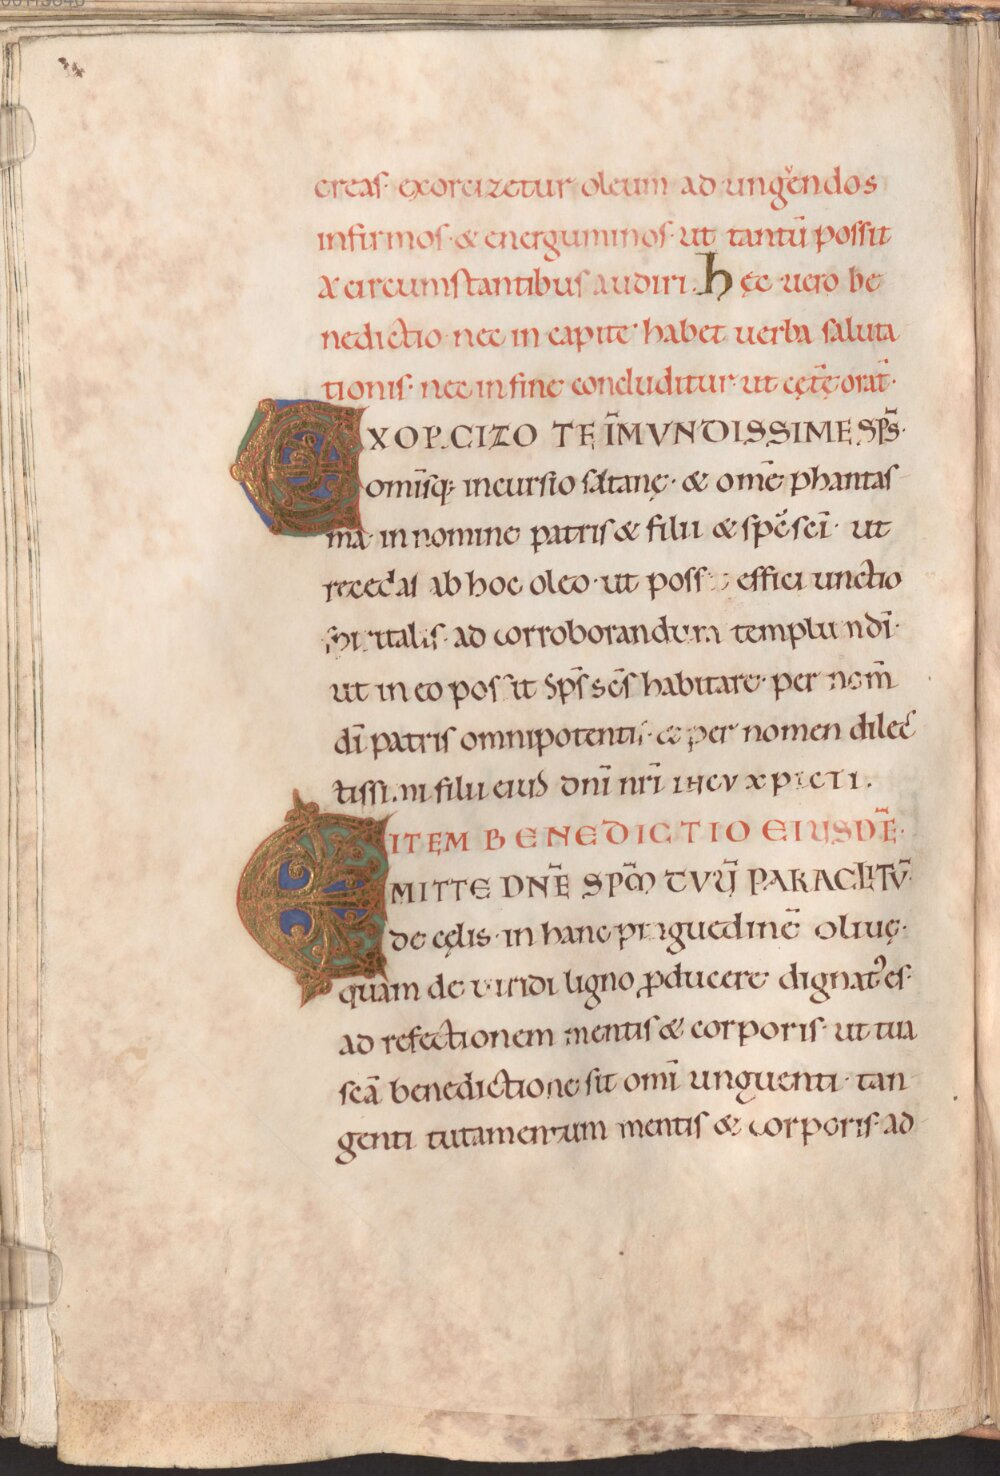 creas· exorcizetur oleum ad ungendos
infirmos· & energuminos· ut tantū possit
a circumstantibus audiri. hęc uero be
nedictio· nec in capite habet uerba saluta
tionis· nec in fine concluditur· ut cęte orat̄·
EXORCIZO TE ĪMVNDISSIME SPS̄·
omīsq; incursio satanę· & omē phantas
ma· in nomine patris & filii & spc̄ sci· ut
recedas ab hoc oleo· ut poss effici unctio
spiritalis· ad corroborandum templū uiuidī·
ut in eo possit sps̄ sc̄s habitare· per nom̄
dī patris omnipotentis· & per nomen dilec
tissimi filii eius dnī nrī IHCV XPICTI.
ITEM BENEDICTIO EIUSDĒ·
EMITTE DNĒ SPM̄ TVŪ PARACLITV̄·
de cęlis· in hanc pinguedinē oliuę·
quam de uiridi ligno ꝓducere dignat' es·
ad refectionem mentis & corporis· ut tua
scā benedictione sit omī unguenti· tan
genti tutamentum mentis & corporis· ad